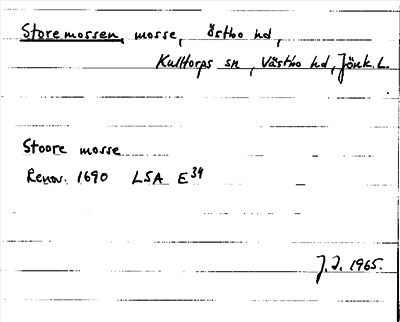 Store mossen, mosse, Östbo hd,
Kulltorps sn, Västbo hd, Jönk. L.
Stoore mosse
Renov. 1690 LSA E39
J.I. 1965.